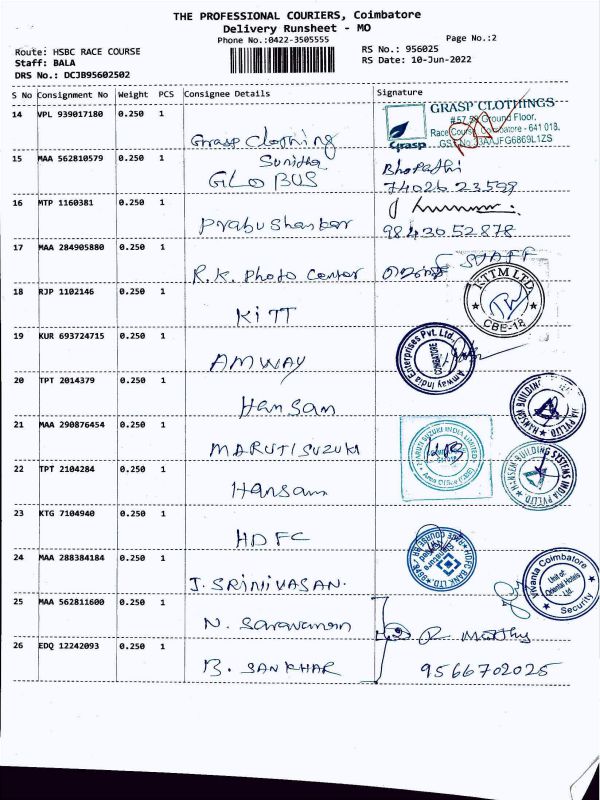 THE PROFESSIONAL COURIERS, Coimbatore
Delivery Runsheet - MO
Phone No.:0422-3505555
Page No.:2
Route: HSBC RACE COURSE
RS No.: 956025
Staff: BALA
RS Date: 10-Jun-2022
DRS No.: DCJB95602502
S No Consignment No Weight PCS Consignee Details Signature
14 VPL 939017180 0.250 1
Grasp Clothing
Sunitha
Grasp
GRASP CLOTHINGS
Ground Floor,
Race Course, Coimbatore - 641 018.
15 MAA 562810579 0.250 1
GLOBUS
Bhopathi
74026 23599
16 MTP 1160381 0.250 1
Prabushankar
98430 52878
17 MAA 284905880 0.250 1
R.K. Photo Center
STAFF
18 RJP 1102146 0.250 1
KiTT
KTTM LTD.
CBE-18
19 KUR 693724715 0.250 1
AMWAY
Amway India Enterprises Pvt. Ltd.
COIMBATORE
20 TPT 2014379 0.250 1
Hansam
21 MAA 290876454 0.250 1
MARUTI SUZUKI
MARUTI SUZUKI INDIA LIMITED
Area Office (CBE)
22 TPT 2104284 0.250 1
Hansam
HANSEM BUILDING SYSTEMS INDIA PVT LTD
23 KTG 7104940 0.250 1
HDFC
HDFC BANK LTD
24 MAA 288384184 0.250 1
J. SRINIVASAN.
Vivanta Coimbatore
Unit of
Oriental Hotels
Ltd.
Security
25 MAA 562811600 0.250 1
N. Saravanan
R Moorthy
26 EDQ 12242093 0.250 1
B. SANKHAR
9566702025